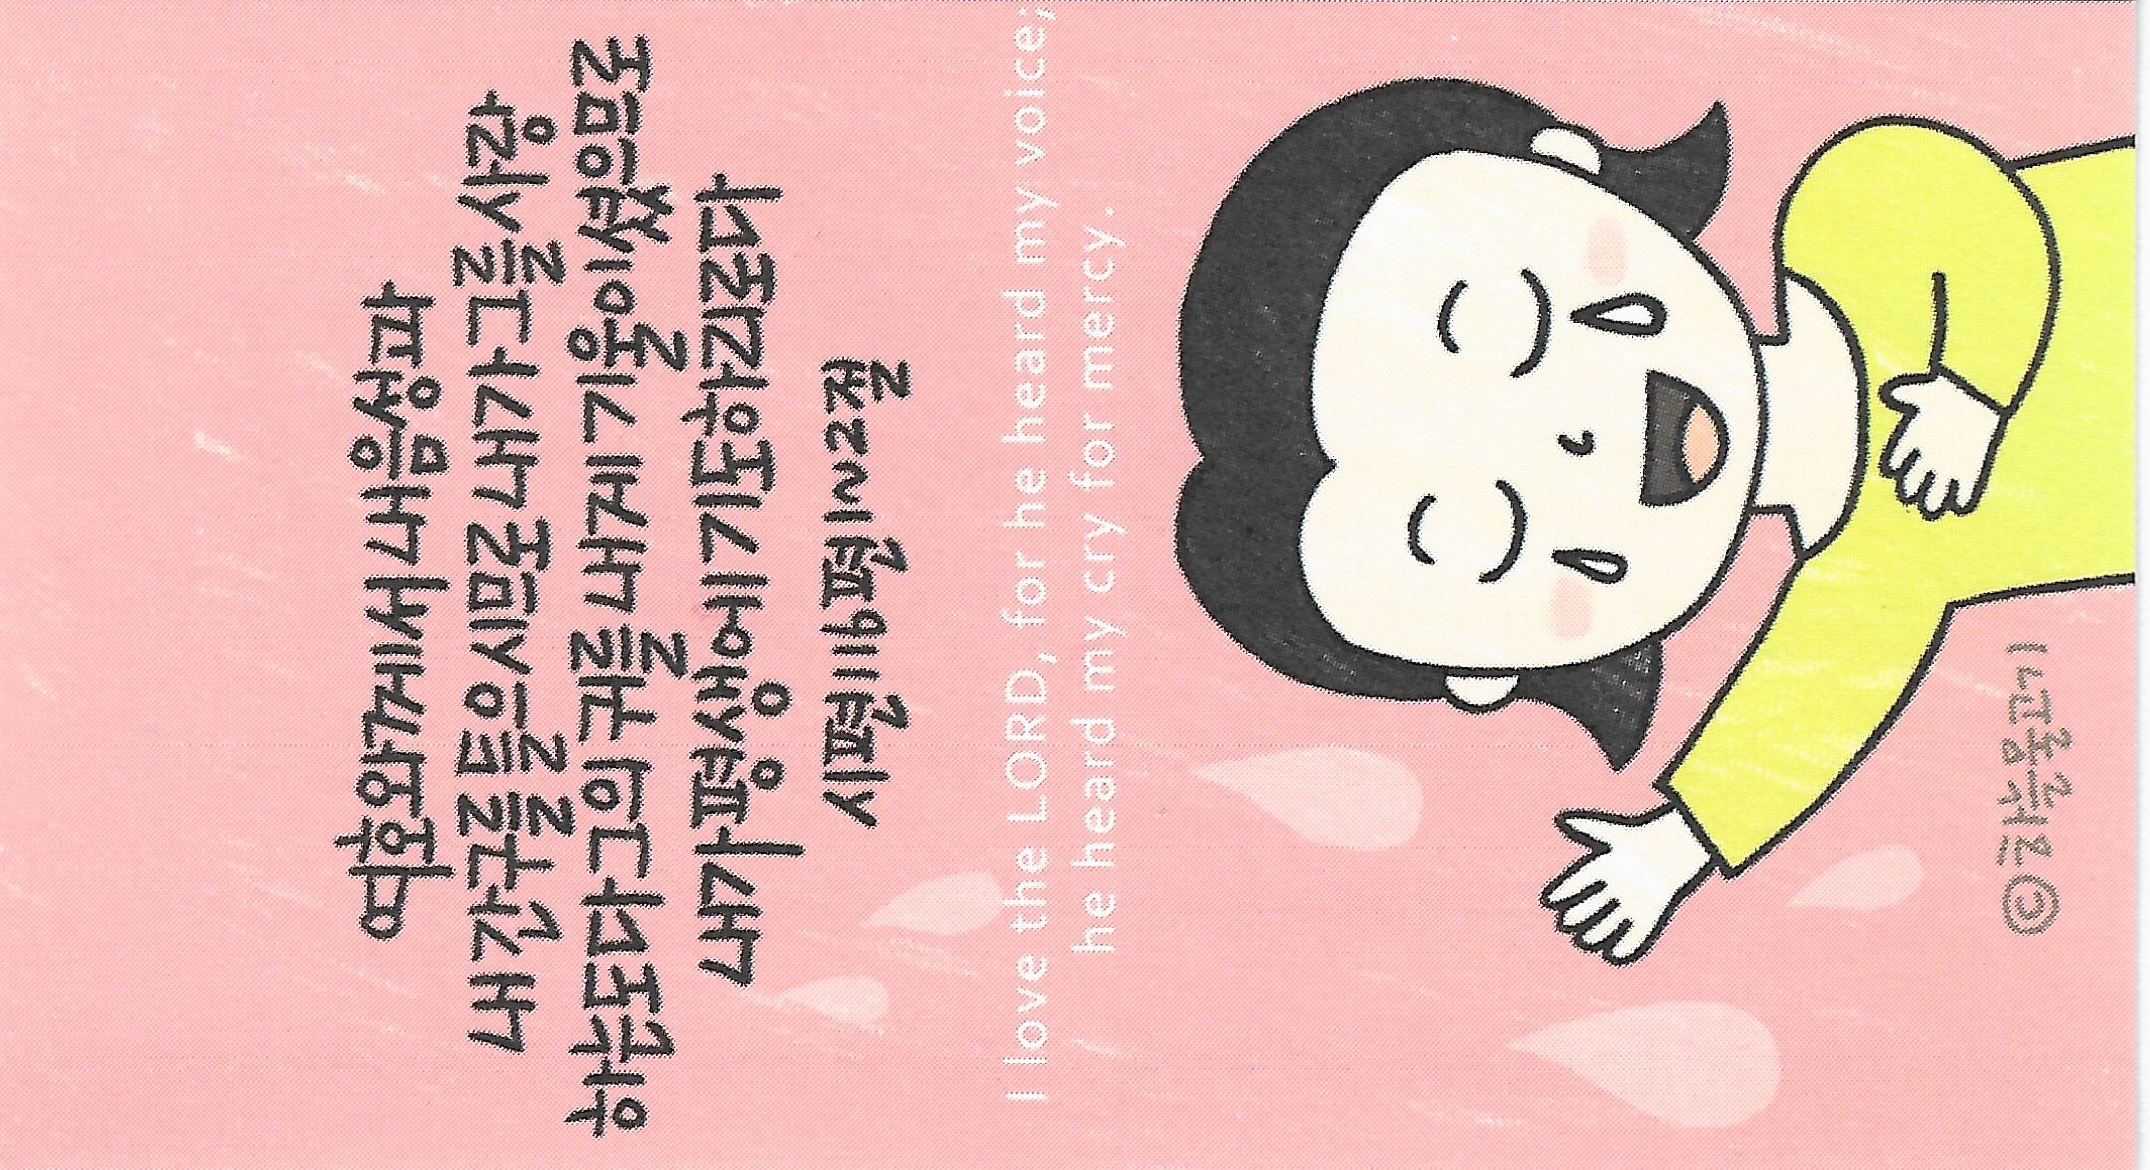 여호와께서 내 음성과
내 간구를 들으시므로 내가 그를 사랑
하는도다 그의 귀를 내게 기울이셨으므로
내가 평생에 기도하리로다
시편 116편 1~2절
I love the LORD, for he heard my voice;
he heard my cry for mercy.
©하늘물고기